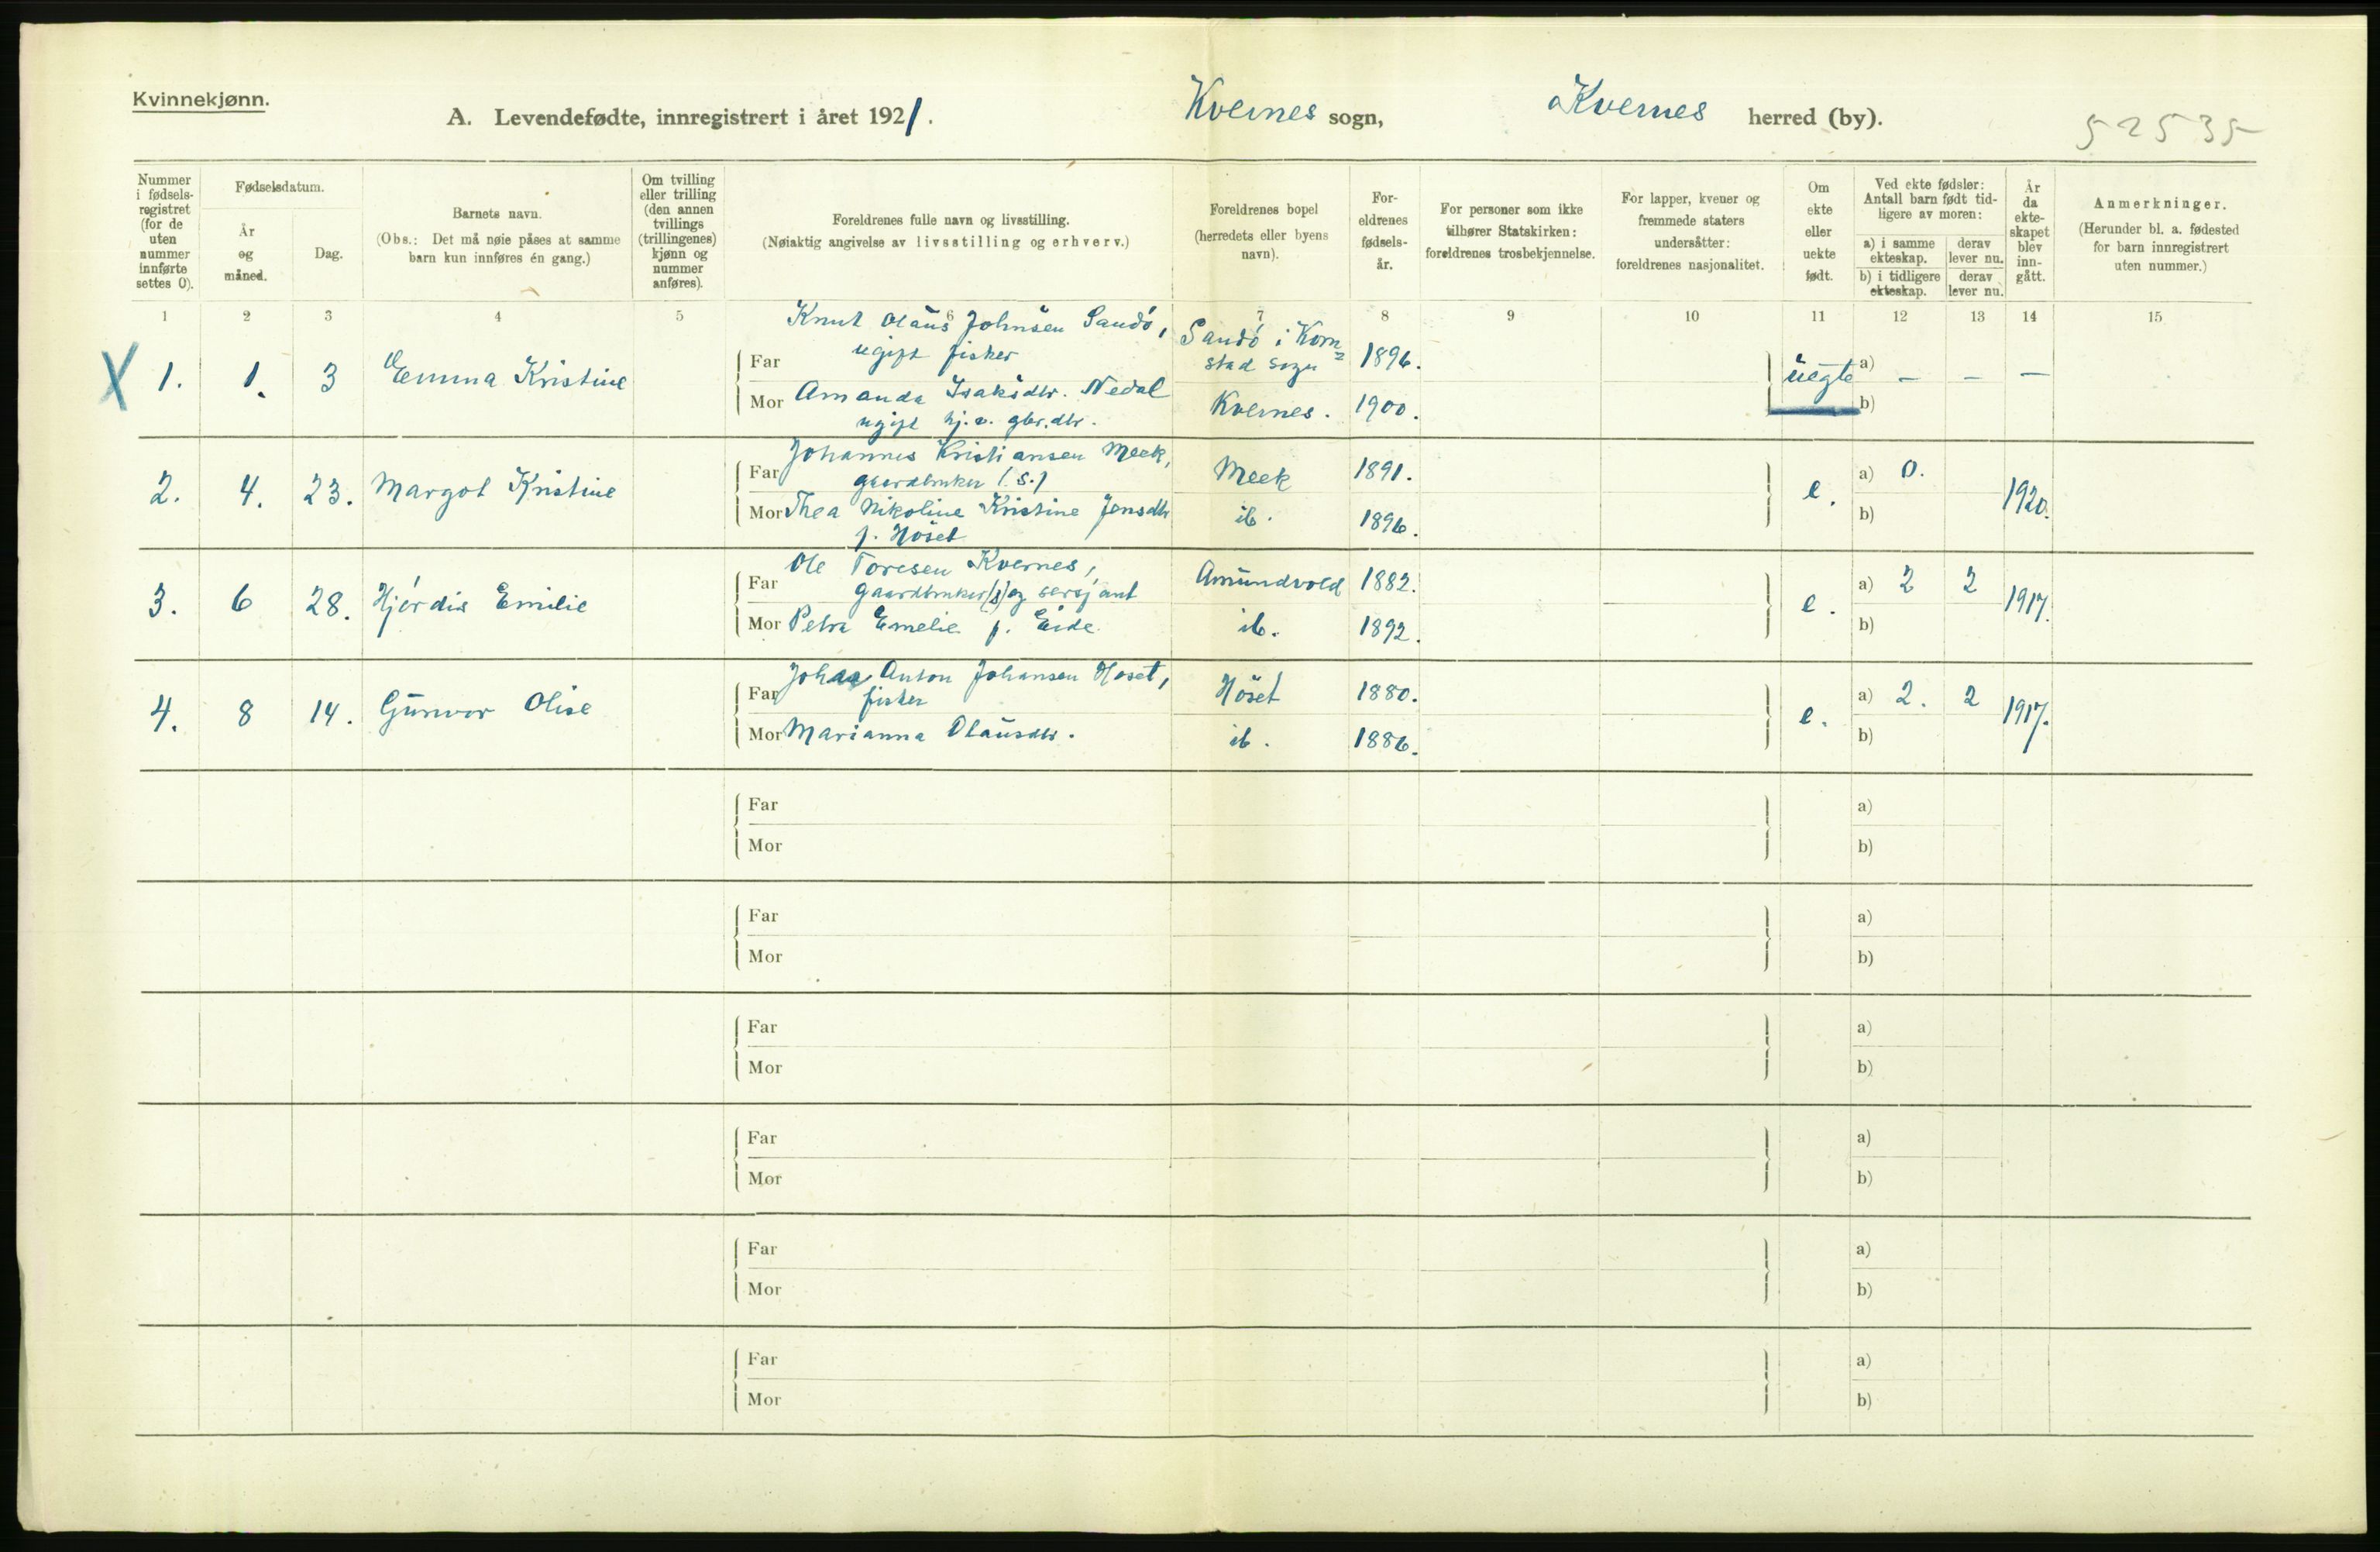 Kvinnekjønn.
A. Levendefødte, innregistrert i året 1921. Kvernes sogn, Kvernes herred (by).
52535
Nummer i fødselsregistret (for de uten nummer innførte settes 0).
Fødselsdatum.
År og måned.
Dag.
Barnets navn.
(Obs.: Det må nøie påses at samme barn kun innføres én gang.)
Om tvilling eller trilling (den annen tvillings (trillingenes) kjønn og nummer anføres).
Foreldrenes fulle navn og livsstilling.
(Nøiaktig angivelse av livsstilling og erhverv.)
Foreldrenes bopel (herredets eller byens navn).
Foreldrenes fødselsår.
For personer som ikke tilhører Statskirken: foreldrenes trosbekjennelse.
For lapper, kvener og fremmede staters undersåtter: foreldrenes nasjonalitet.
Om ekte eller uekte født.
Ved ekte fødsler: Antall barn født tidligere av moren:
a) i samme ekteskap. derav lever nu.
b) i tidligere ekteskap. derav lever nu.
År da ekteskapet blev inngått.
Anmerkninger.
(Herunder bl. a. fødested for barn innregistrert uten nummer.)
1 2 3 4 5 6 7 8 9 10 11 12 13 14 15
X 1. 1. 3 Emma Kristine
Far Knut Olaus Johnsen Sandö, ugift fisker
Sandö i Kornstad sogn 1896.
Mor Amanda Isaksdtr. Nedal ugift hj.v. gbr.dtr.
Kvernes. 1900.
uegte a) – – –
b)
2. 4. 23. Margot Kristine
Far Johannes Kristiansen Meek, gaardbruker (s.)
Meek 1891.
Mor Thea Nikoline Kristine Jensdtr f. Höset
ib. 1896.
e. a) 0. 1920.
b)
3. 6 28. Hjördis Emilie
Far Ole Toresen Kvernes, gaardbruker (s) og sersjant
Amundvold 1882.
Mor Petra Emelie f. Eide
ib. 1892.
e. a) 2 2 1917.
b)
4. 8 14. Gunvor Olise
Far Johan Anton Johansen Höset, fisker
Höset 1880.
Mor Marianna Olausdtr.
ib. 1886.
e. a) 2. 2 1917.
b)
Far a)
Mor b)
Far a)
Mor b)
Far a)
Mor b)
Far a)
Mor b)
Far a)
Mor b)
Far a)
Mor b)